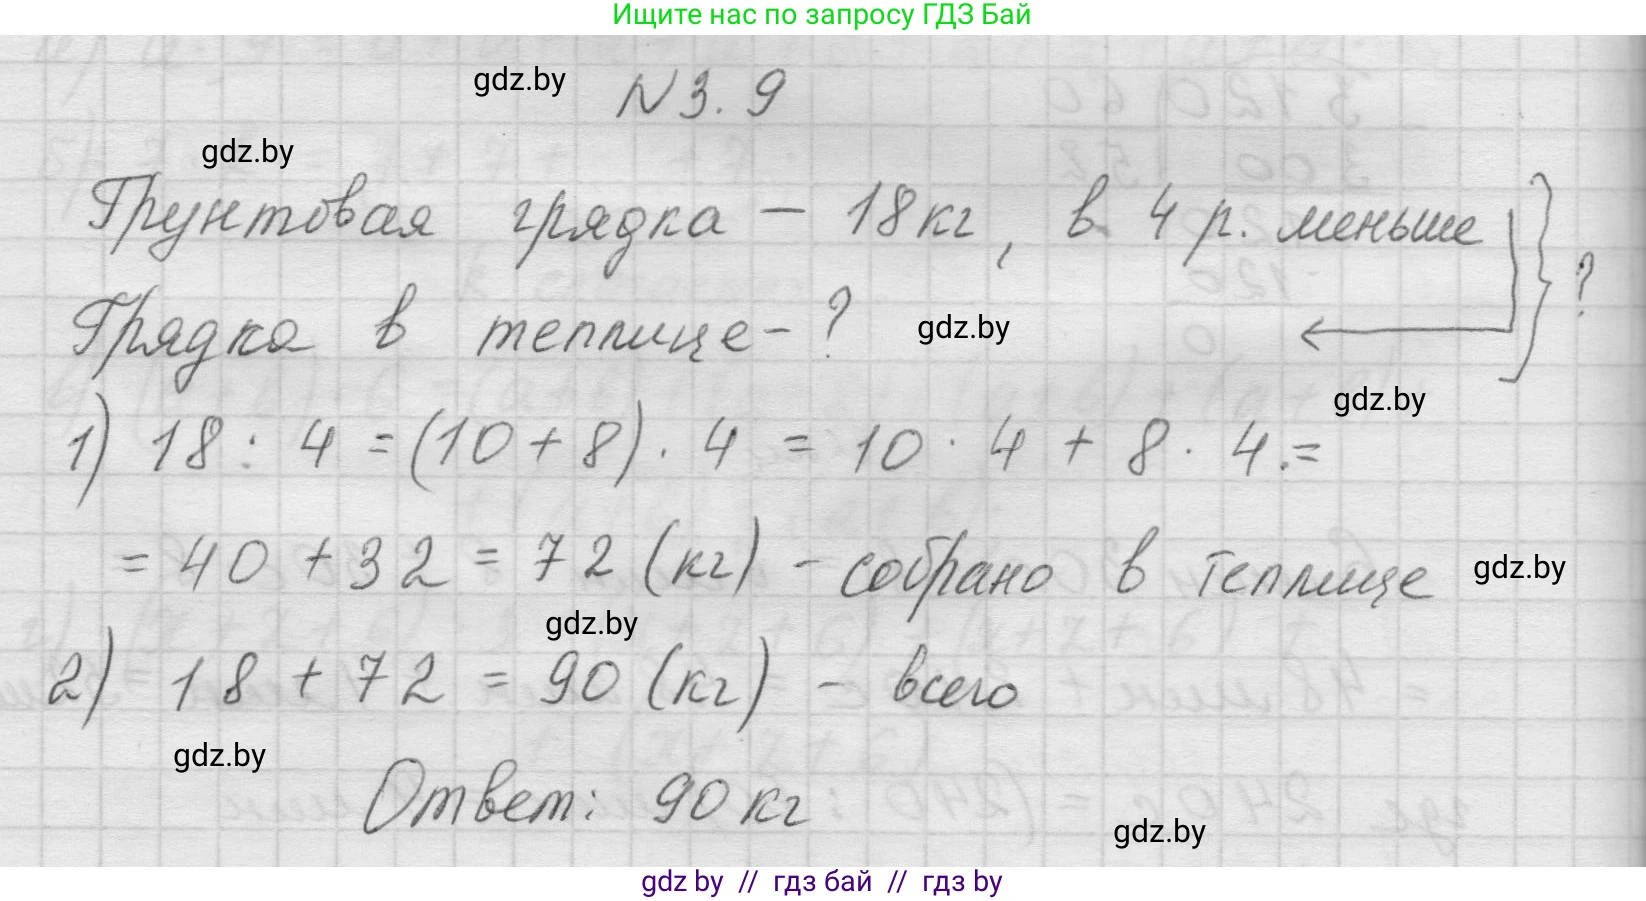 Ищите нас по запросу ГДЗ Бай
gdz.by
N3.9
gdz.by
Грунтовая грядка - 18кг, в 4 р. меньше
?
Грядка в теплице - ?
gdz.by
gdz.by
1) 18 : 4 = (10 + 8) · 4 = 10 · 4 + 8 · 4 =
= 40 + 32 = 72 (кг) - собрано в теплице
gdz.by
gdz.by
2) 18 + 72 = 90 (кг) - всего
gdz.by
Ответ: 90 кг
gdz.by
gdz by // гдз бай // гдз by